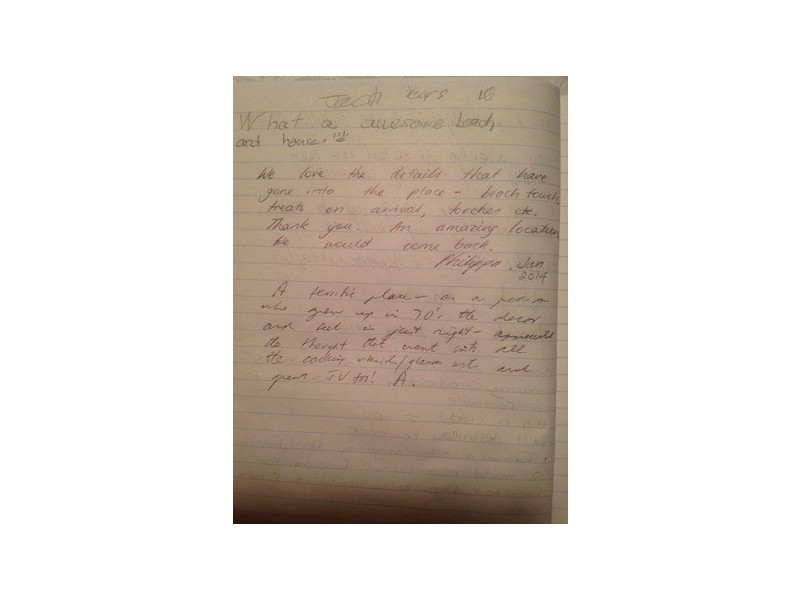 Jack Years 10
What a awesome beach
and house!
We love the details that have
gone into the place - beach touch,
treats on arrival, torches etc.
Thank you. An amazing location
We would come back.
Philippa. Jan
2014
A terrific place - as a person
who grew up in 70's the decor
and feel is just right - appreciated
the thought that went into all
the cooking utensils/glasses etc and
great TV too! A.